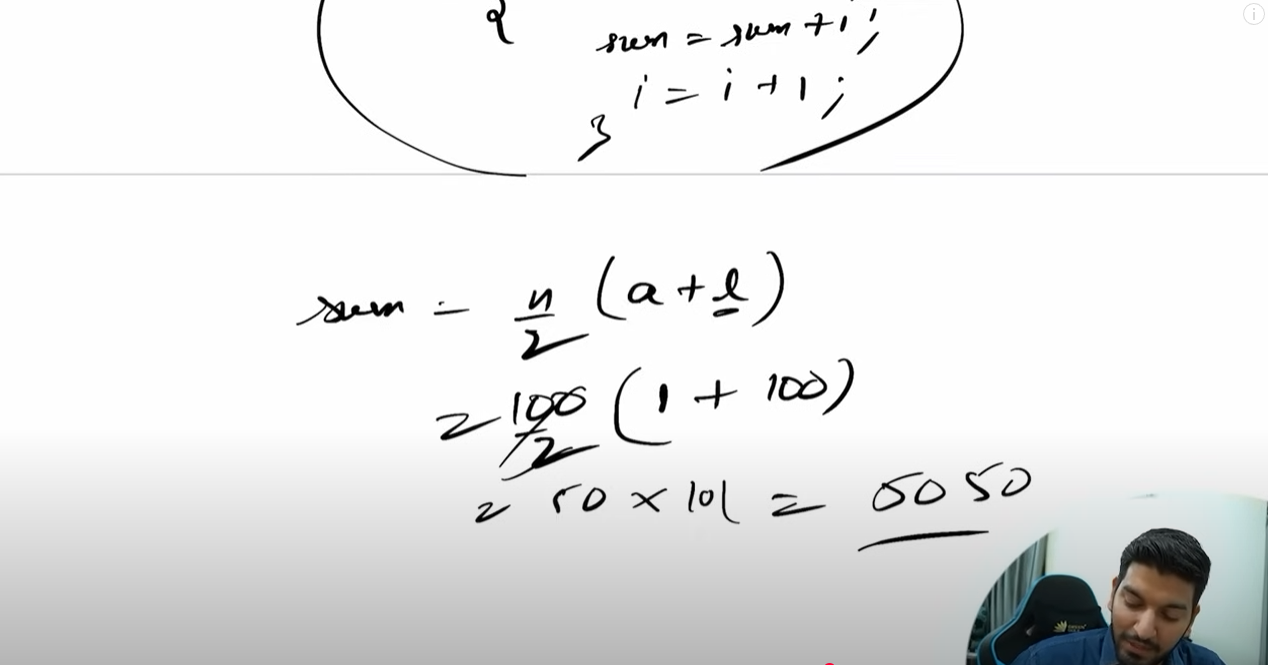 { sum = sum + i ;
i = i + 1 ;
}
sum = n/2 (a + l)
= 100/2 (1 + 100)
= 50 × 101 = 5050